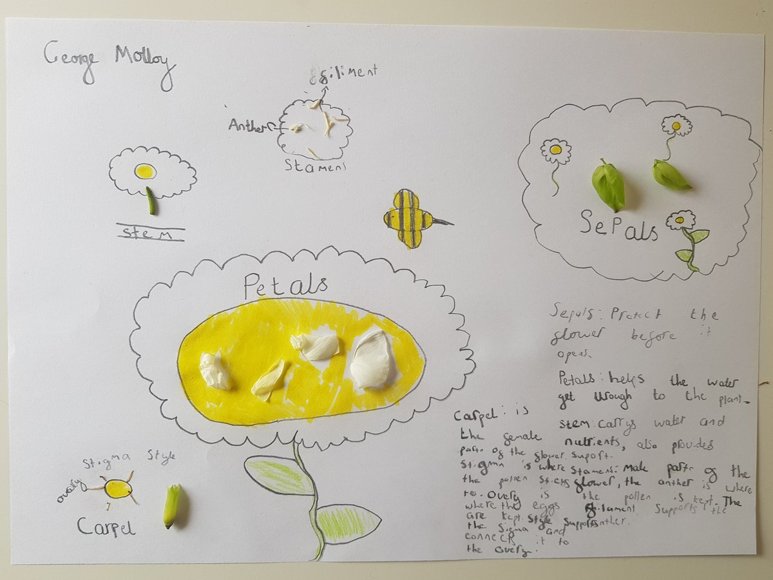 George Molloy
filiment
Anther
Stament
Stem
Sepals
Petals
Sepals: Protect the
flower before it
opens.
Petals: helps the water
get through to the plant.
stem: carrys water and
nutrients, also provides
suport.
Stamens: Make part of the
flower, the anther is where
the pollen is kept. The
filament supports the
anther.
Carpel: is
the female
part of the flower.
Stigma is where
the pollen sticks
to. Overy is
where the eggs
are kept. Style supports
the Sigma and
connects it to
the overy.
Stigma Style
overy
Carpel